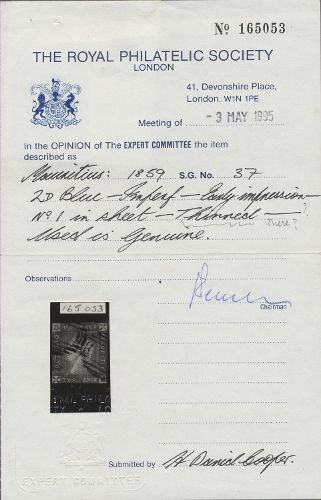 No 165053
THE ROYAL PHILATELIC SOCIETY
LONDON
41, Devonshire Place,
London, W1N 1PE
Meeting of - 3 MAY 1995
In the OPINION of The EXPERT COMMITTEE the item
described as
Mauritius: 1859 S.G. No. 37
2D Blue - Imperf - Early impression -
No 1 in sheet - Thinned - ?
there?
Used is Genuine.
Observations
Chairman
165 053
TWO PENCE
ROYAL PHILA
Submitted by H. Daniel Cooper.
EXPERT COMMITTEE